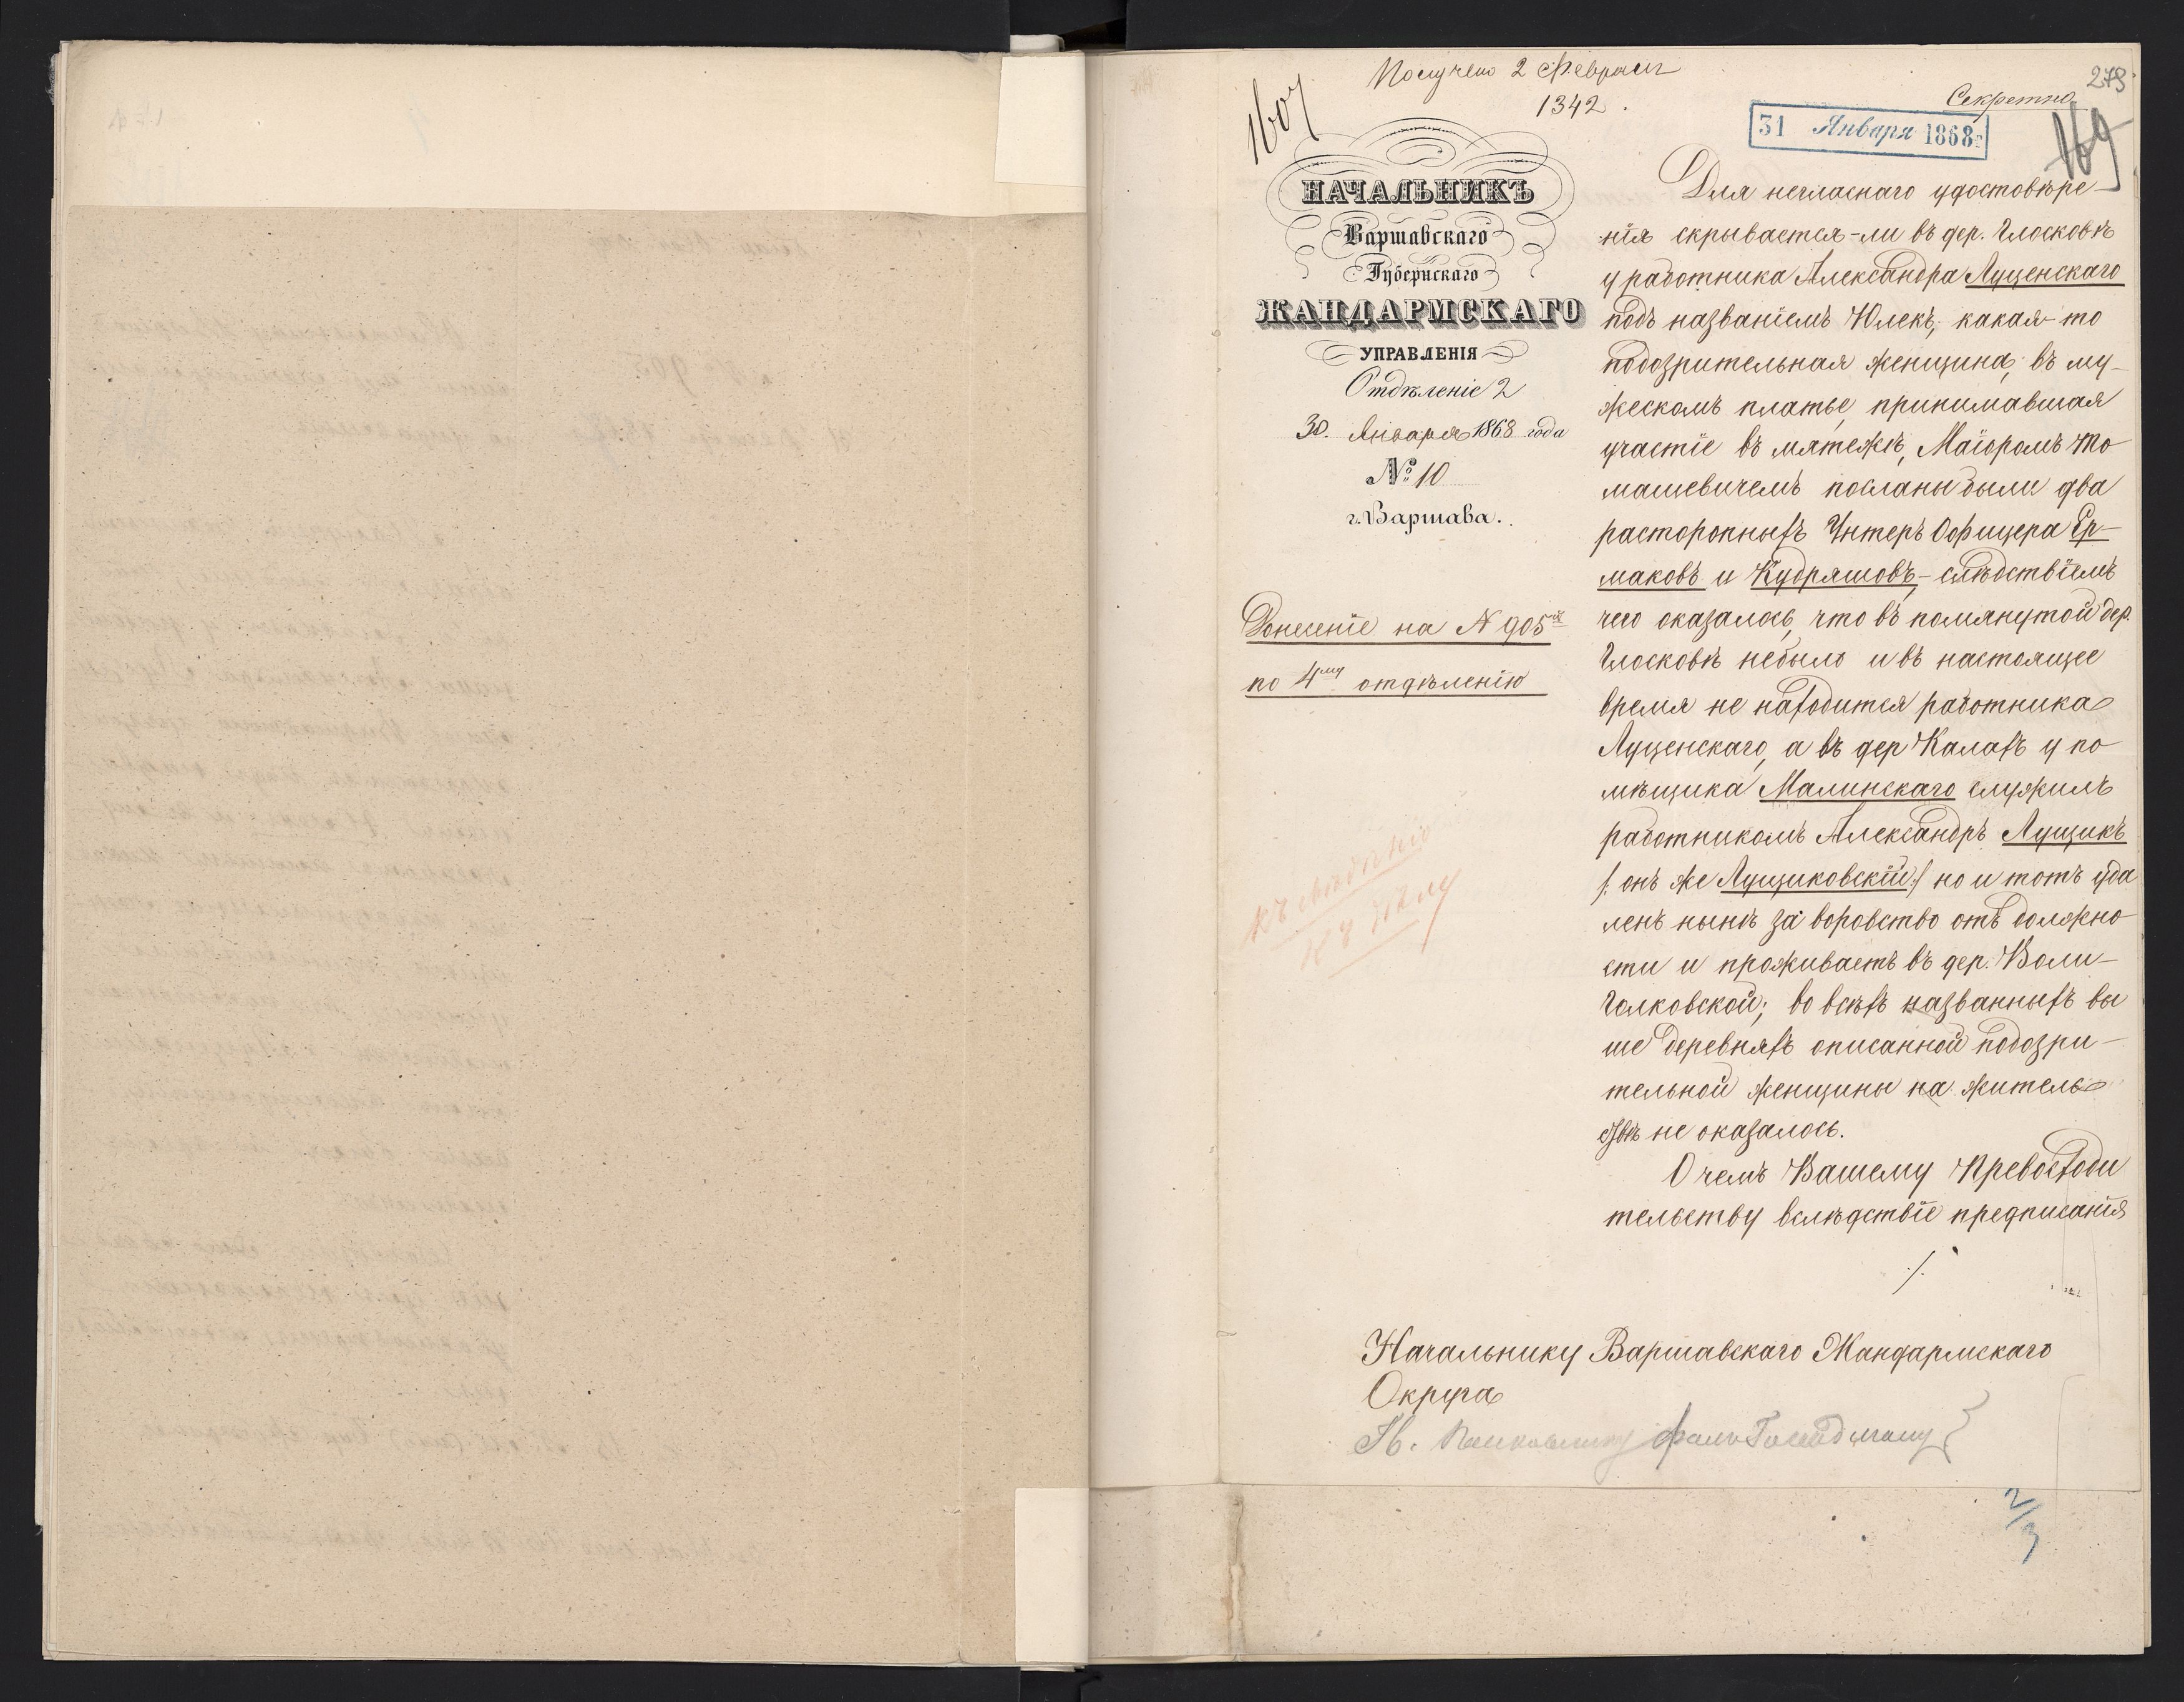 Получено 2 Февраля
1342.
1607
Секретно
279
31 Января 1868 г
169
НАЧАЛЬНИКЪ
Варшавскаго
Губернскаго
ЖАНДАРМСКАГО
УПРАВЛЕНІЯ
Отдѣленіе 2
30. Января 1868 года
№ 10
г. Варшава.
Донесеніе на N 905
по 4му отдѣленію
къ свѣдѣнію
къ дѣлу
Для негласнаго удостовѣре-
нія скрывается-ли въ дер. Глосковѣ
у работника Александра Луценскаго
подъ названіемъ Юлекъ, какая-то
подозрительная женщина, въ му-
жескомъ платье, принимавшая
участіе въ мятежѣ, Маіоромъ То
машевичемъ посланы были два
расторопныхъ Унтеръ Офицера Ер-
маковъ и Кудряшовъ,- слѣдствіемъ
чего оказалось, что въ помянутой дер.
Глосковѣ небыло и въ настоящее
время не находится работника
Луценскаго, а въ дер Калахъ у по
мѣщика Малинскаго служилъ
работникомъ Александръ Лущикъ
/: онъ же Лущиковскій :/ но и тотъ уда
ленъ нынѣ за воровство отъ должно
сти и проживаетъ въ дер. Воли-
Голковской; во всѣхъ названныхъ вы
ше деревняхъ описанной подозри-
тельной женщины на житель
ствѣ не оказалось.
О чемъ Вашему Превосходи
тельству вслѣдствіе предписанія
./.
Начальнику Варшавскаго Жандармскаго
Округа
Полковнику фонъ
2/3